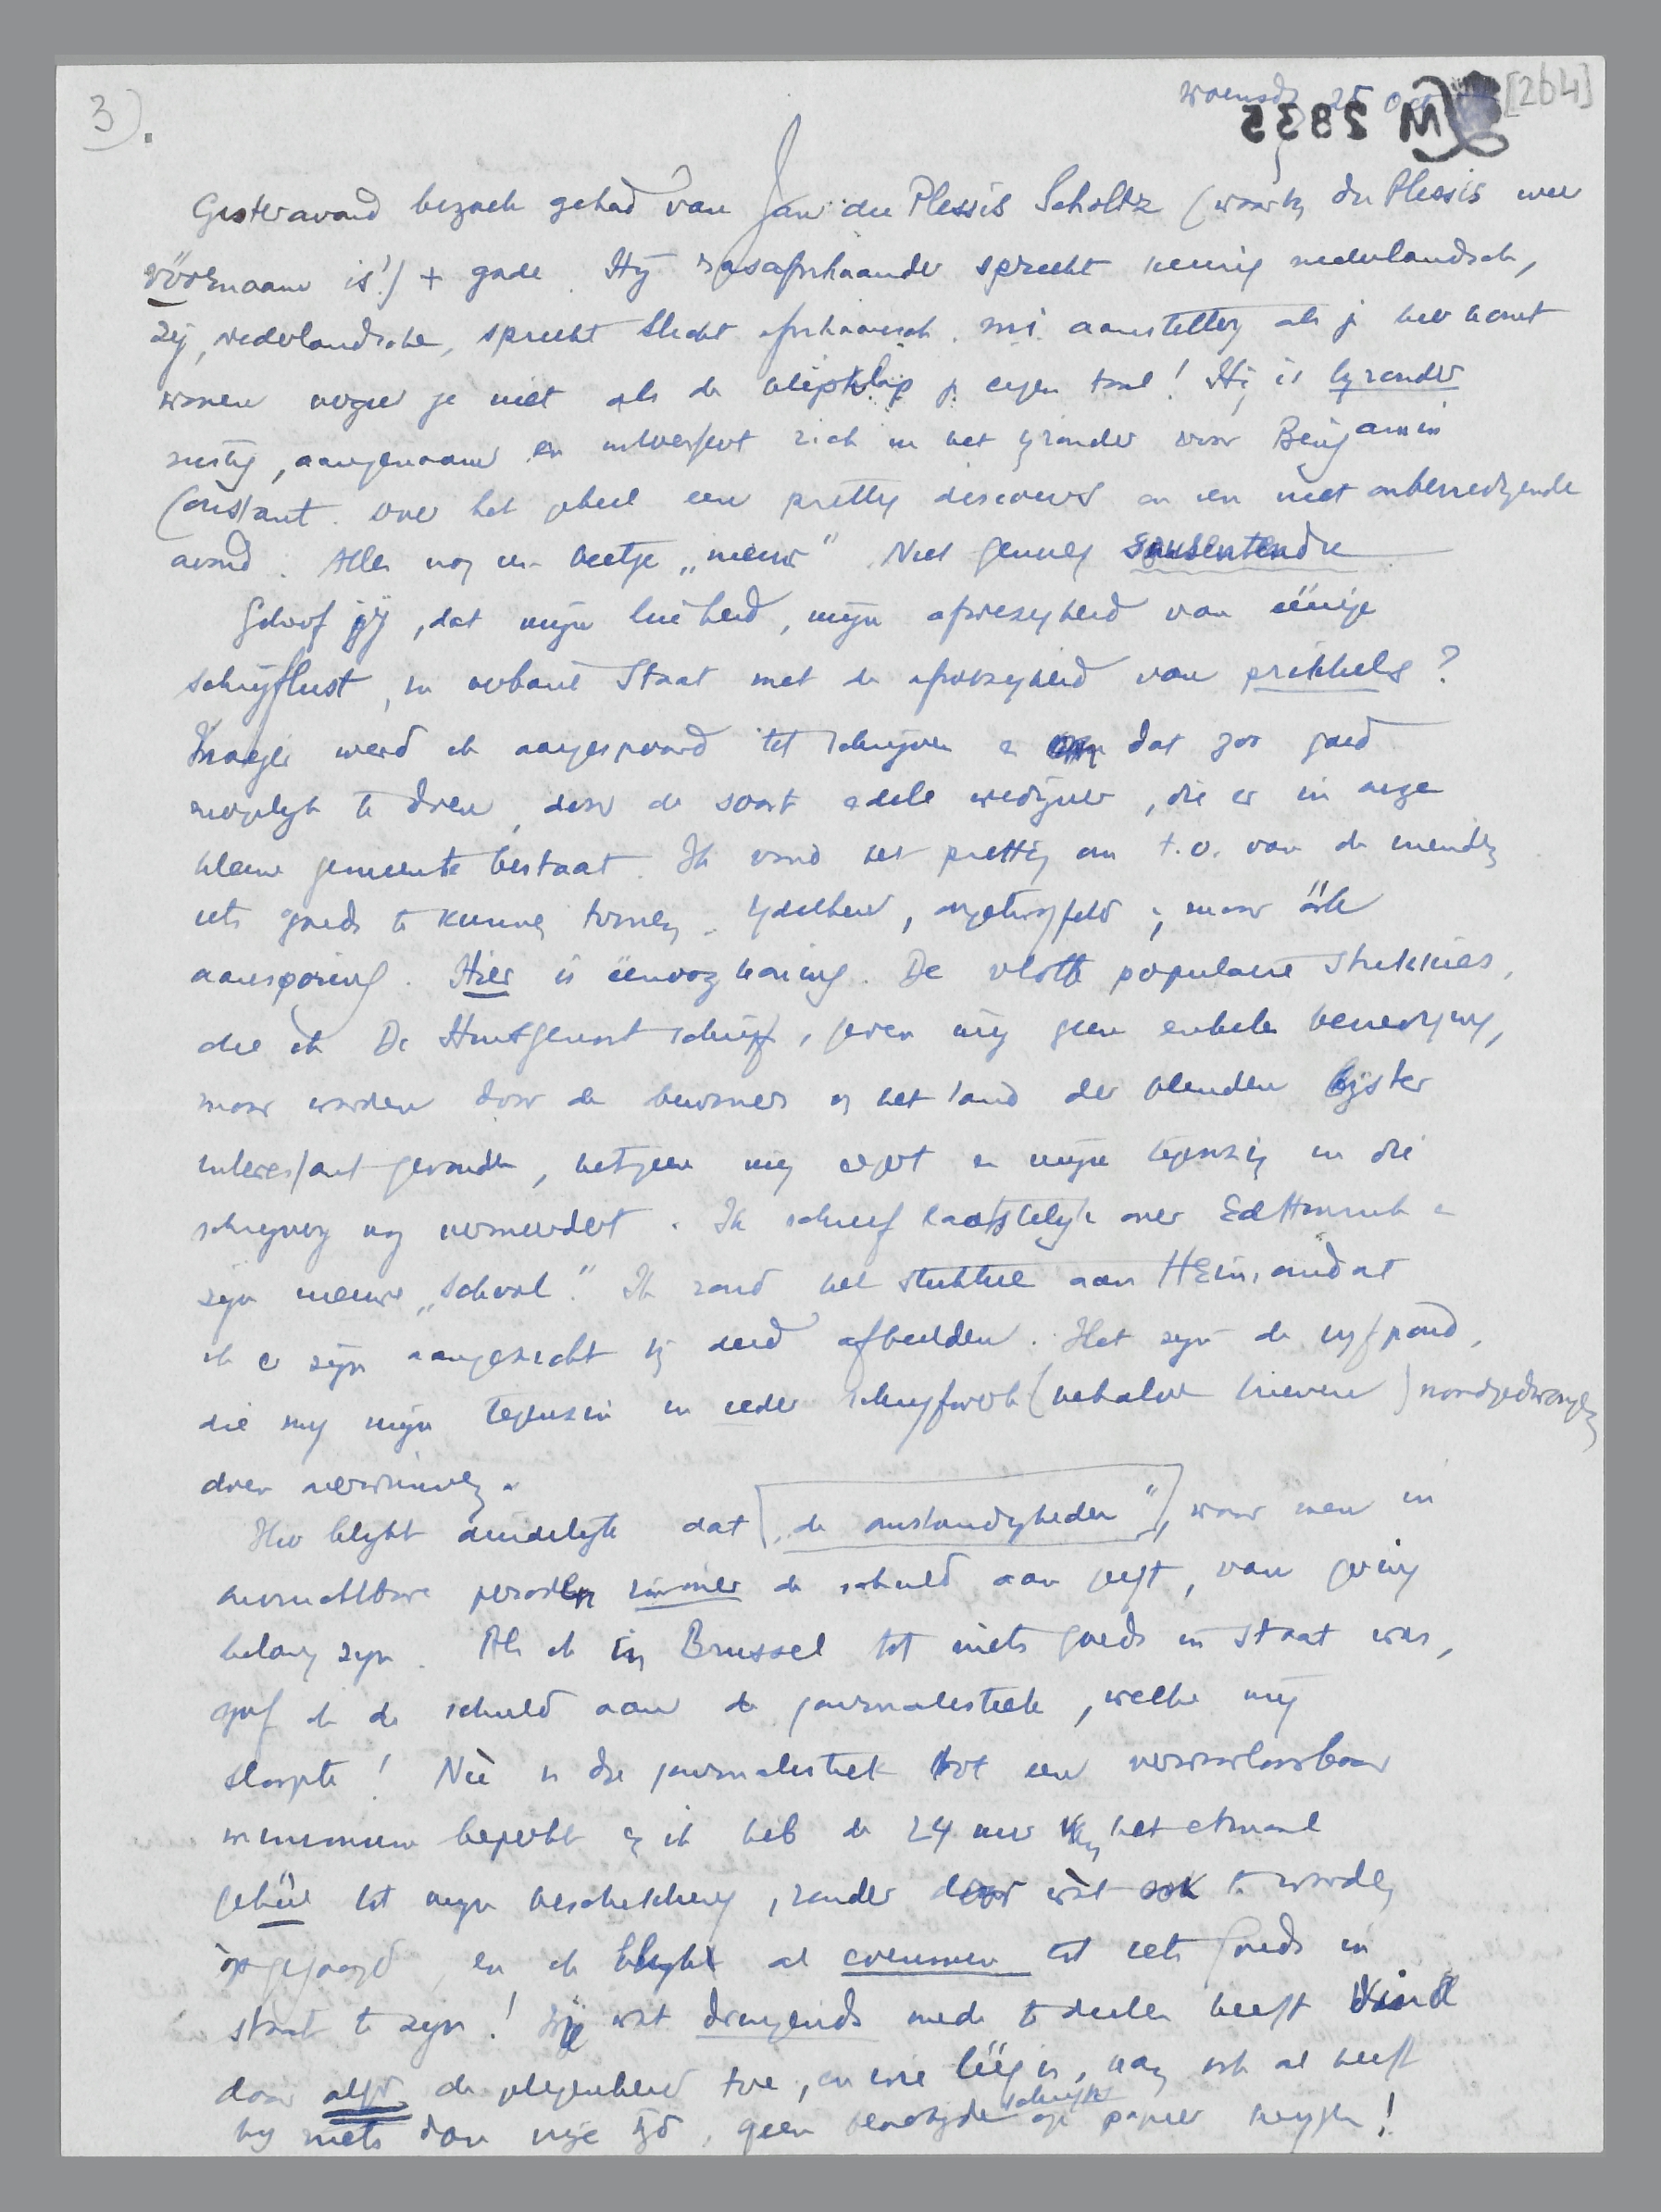 3).
woensdag 25 Oct [264]
M 2835
Gisteravond bezoek gehad van Jan du Plessis Scholtz (waarbij du Plessis een
vóórnaam is!) + gade. Hij rasafrikaander spreekt keurig nederlandsch,
zij, nederlandsche, spreekt slecht afrikaansch. m.i. aanstellerij als je hier komt
wonen je niet als de je eigen taal! Hij is bijzonder
rustig, aangenaam en interesseert zich in het bijzonder voor Benjamin
Constant. Over het geheel een prettig discours en een niet onbevredigende
avond. Alles nog een beetje „nieuw" Niet genoeg sousentendu
Geloof jij, dat mijn luiheid, mijn afwezigheid van eenige
schrijflust, in verband staat met de afwezigheid van prikkels?
Vroeger werd ik aangespoord tot schrijven en dat zoo goed
mogelijk te doen, door de soort edele wedijver, die er in onze
kleine gemeente bestaat. Ik vond het prettig om t.o. van de vrienden
iets goeds te kunnen toonen. Ijdelheid, ongetwijfeld; maar óók
aansporing. Hier is éénoog koning. De vlotte populaire stukkies,
die ik De Huisgenoot schrijf, geven mij geen enkele bevrediging,
maar worden door de bewoners v. het land der blinden bijster
interessant gevonden, hetgeen mij ergert en mijn tegenzin in die
schrijverij nog vermeerdert. Ik schreef laatstelijk over Ed Hoornik en
zijn nieuwe „school". Ik zond het stukkie aan Hein, omdat
ik er zijn aangezicht bij deed afbeelden. Het zijn de vijf pond,
die mij mijn tegenzin in ieder schrijfwerk (behalve brieven) noodgedwongen
doen overwinnen.
Hier blijkt duidelijk dat „de omstandigheden", waar men in
onvruchtbare perioden immer de schuld aan geeft, van gering
belang zijn. Als ik in Brussel tot niets goeds in staat was,
gaf ik de schuld aan de journalistiek, welke mij
sloopte! Nù is die journalistiek tot een verwaarloosbaar
minimum beperkt en ik heb de 24 uur van het etmaal
gehéél tot mijn beschikking, zonder door wàt ook te worden
òpgejaagd, en ik blijk al evenmin tot iets goeds in
staat te zijn! Wie wat dringends mede te deelen heeft vindt
daar altijd de gelegenheid toe, en wie léég is, kan, ook al heeft
hij niets dan vrije tijd, geen schrijfs op papier krijgen!